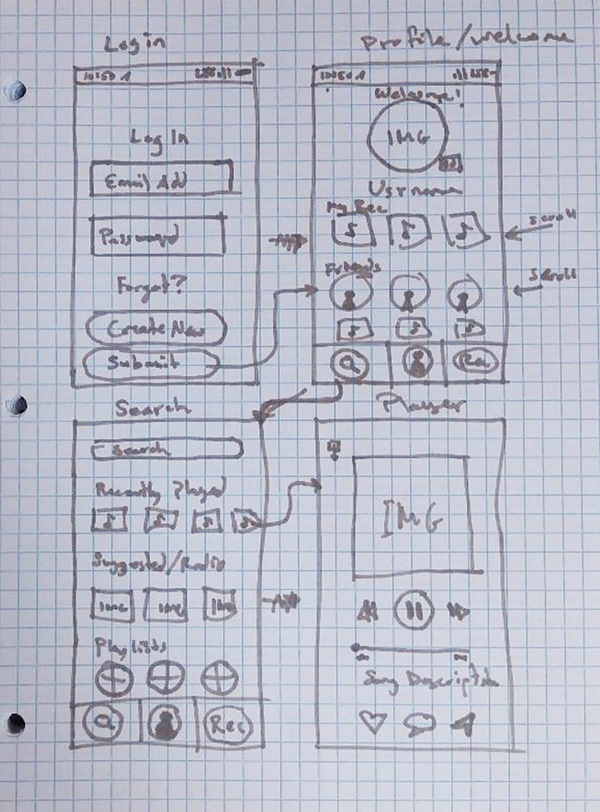 Login
Profile/welcome
Log In
Email Add
Password
Forgot?
Create New
Submit
Welcome!
IMG
Username
My Rec
scroll
Friends
scroll
Rec
Search
Search
Recently Played
Suggested/Radio
IMG IMG IMG
Playlists
Rec
Player
IMG
Song Description